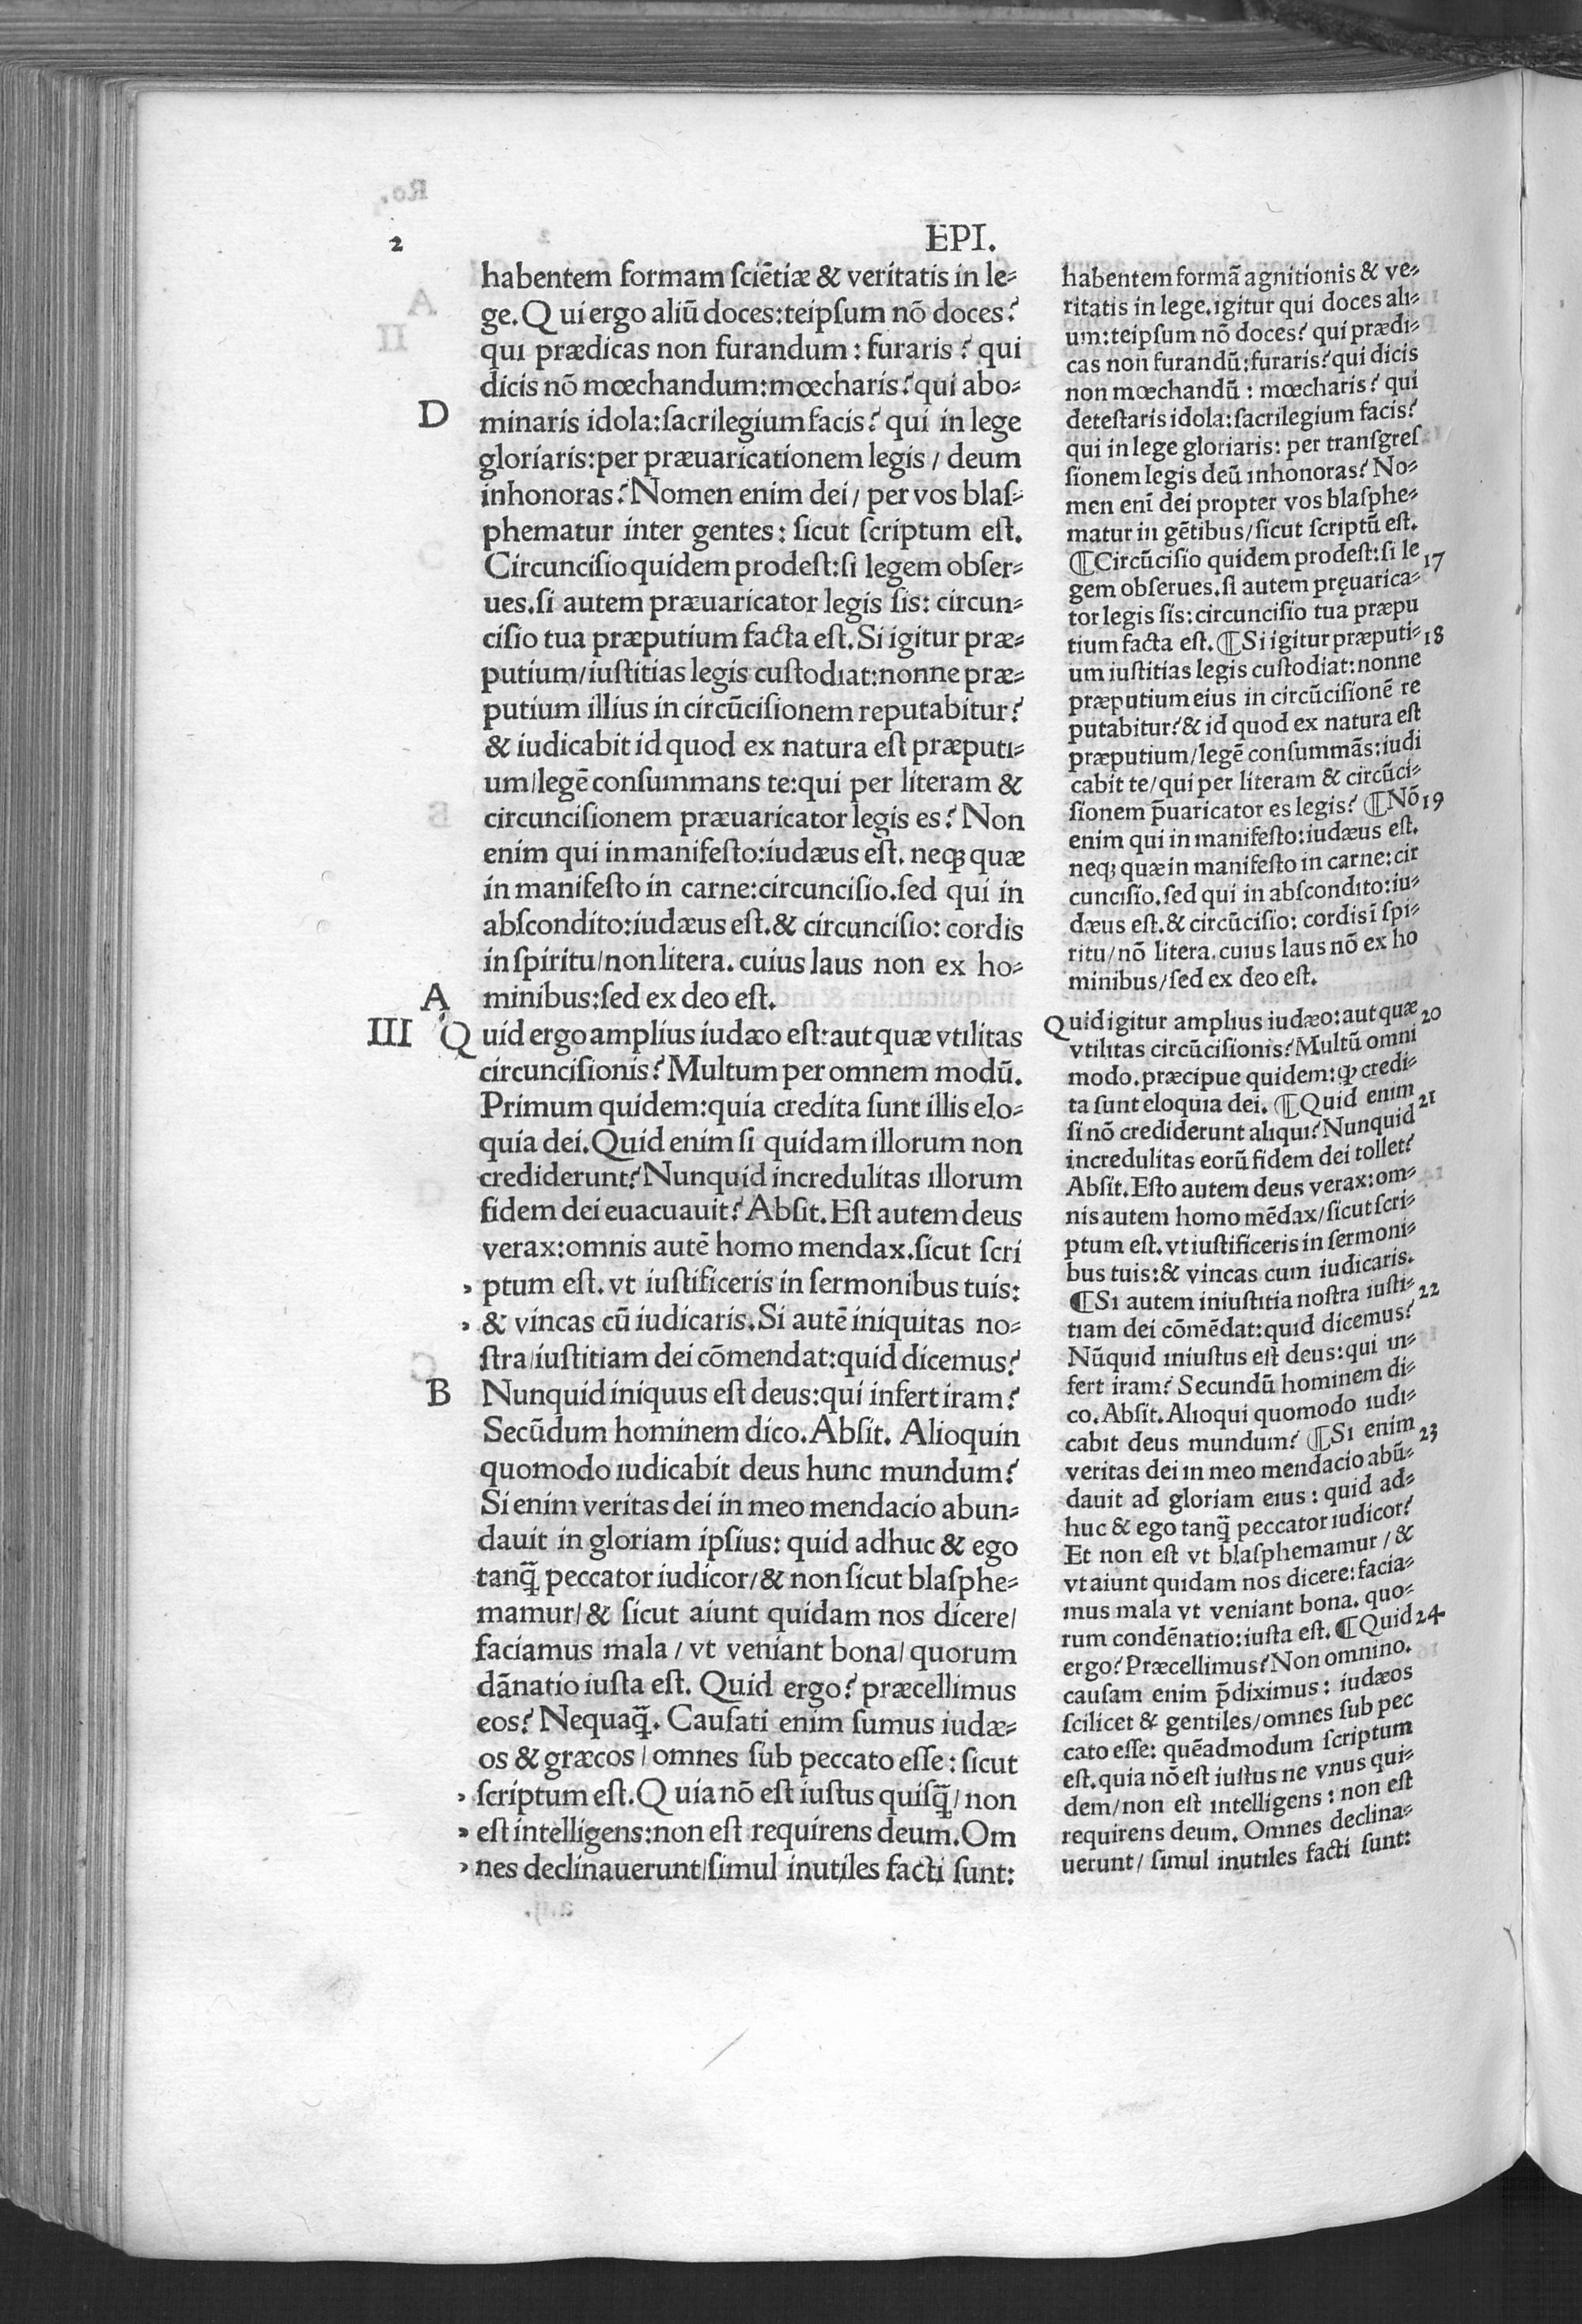 2
EPI.
habentem formam ſciẽtiæ & veritatis in le⸗
ge. Qui ergo aliũ doces:teipſum nõ doces?
qui prædicas non furandum : furaris ? qui
dicis nõ mœchandum:mœcharis? qui abo⸗
D
minaris idola:ſacrilegium facis? qui in lege
gloriaris:per præuaricationem legis / deum
inhonoras? Nomen enim dei / per vos blaſ⸗
phematur inter gentes : ſicut ſcriptum eſt.
Circunciſio quidem prodeſt:ſi legem obſer⸗
ues. ſi autem præuaricator legis ſis: circun⸗
ciſio tua præputium facta eſt. Si igitur præ⸗
putium/iuſtitias legis cuſtodiat:nonne præ⸗
putium illius in circũciſionem reputabitur?
& iudicabit id quod ex natura eſt præputi⸗
um/legẽ conſummans te:qui per literam &
circunciſionem præuaricator legis es? Non
enim qui in manifeſto:iudæus eſt. neqꝫ quæ
in manifeſto in carne:circunciſio. ſed qui in
abſcondito:iudæus eſt. & circunciſio: cordis
in ſpiritu/non litera. cuius laus non ex ho⸗
A
minibus:ſed ex deo eſt.
III
Quid ergo amplius iudæo eſt:aut quæ vtilitas
circunciſionis? Multum per omnem modũ.
Primum quidem:quia credita ſunt illis elo⸗
quia dei. Quid enim ſi quidam illorum non
crediderunt? Nunquid incredulitas illorum
fidem dei euacuauit? Abſit. Eſt autem deus
verax:omnis autẽ homo mendax. ſicut ſcri
› ptum eſt. vt iuſtificeris in ſermonibus tuis:
› & vincas cũ iudicaris. Si autẽ iniquitas no⸗
ſtra/iuſtitiam dei cõmendat:quid dicemus?
B
Nunquid iniquus eſt deus:qui infert iram?
Secũdum hominem dico. Abſit. Alioquin
quomodo iudicabit deus hunc mundum?
Si enim veritas dei in meo mendacio abun⸗
dauit in gloriam ipſius: quid adhuc & ego
tanꝗ̃ peccator iudicor/& non ſicut blaſphe⸗
mamur/& ſicut aiunt quidam nos dicere/
faciamus mala / vt veniant bona/ quorum
dãnatio iuſta eſt. Quid ergo? præcellimus
eos? Nequaꝗ̃. Cauſati enim ſumus iudæ⸗
os & græcos / omnes ſub peccato eſſe : ſicut
› ſcriptum eſt. Quia nõ eſt iuſtus quiſꝗ̃/ non
› eſt intelligens:non eſt requirens deum. Om
› nes declinauerunt/ſimul inutiles facti ſunt:
habentem formã agnitionis & ve⸗
ritatis in lege. igitur qui doces ali⸗
um:teipſum nõ doces? qui prædi⸗
cas non furandũ:furaris? qui dicis
non mœchandũ : mœcharis? qui
deteſtaris idola:ſacrilegium facis?
qui in lege gloriaris: per tranſgreſ
ſionem legis deũ inhonoras? No⸗
men enĩ dei propter vos blaſphe⸗
matur in gẽtibus/ſicut ſcriptũ eſt.
¶Circũciſio quidem prodeſt:ſi le 17
gem obſerues. ſi autem pręuarica⸗
tor legis ſis:circunciſio tua præpu
tium facta eſt. ¶Si igitur præputi⸗ 18
um iuſtitias legis cuſtodiat:nonne
præputium eius in circũciſionẽ re
putabitur? & id quod ex natura eſt
præputium/legẽ conſummãs:iudi
cabit te/qui per literam & circũci⸗
ſionem p̃uaricator es legis? ¶Nõ 19
enim qui in manifeſto:iudæus eſt.
neqꝫ quæ in manifeſto in carne:cir
cunciſio. ſed qui in abſcondito:iu⸗
dæus eſt. & circũciſio: cordis ĩ ſpi⸗
ritu/nõ litera. cuius laus nõ ex ho
minibus/ſed ex deo eſt.
Quid igitur amplius iudæo:aut quæ 20
vtilitas circũciſionis? Multũ omni
modo. præcipue quidem:ꝙ credi⸗
ta ſunt eloquia dei. ¶Quid enim 21
ſi nõ crediderunt aliqui? Nunquid
incredulitas eorũ fidem dei tollet?
Abſit. Eſto autem deus verax:om⸗
nis autem homo mẽdax/ſicut ſcri⸗
ptum eſt. vt iuſtificeris in ſermoni⸗
bus tuis:& vincas cum iudicaris.
¶Si autem iniuſtitia noſtra iuſti⸗ 22
tiam dei cõmẽdat:quid dicemus?
Nũquid iniuſtus eſt deus:qui in⸗
fert iram? Secundũ hominem di⸗
co. Abſit. Alioqui quomodo iudi⸗
cabit deus mundum? ¶Si enim 23
veritas dei in meo mendacio abũ⸗
dauit ad gloriam eius : quid ad⸗
huc & ego tanꝗ̃ peccator iudicor?
Et non eſt vt blaſphemamur / &
vt aiunt quidam nos dicere:facia⸗
mus mala vt veniant bona. quo⸗
rum condẽnatio:iuſta eſt. ¶Quid 24
ergo? Præcellimus? Non omnino.
cauſam enim p̃diximus : iudæos
ſcilicet & gentiles/omnes ſub pec
cato eſſe: quẽadmodum ſcriptum
eſt. quia nõ eſt iuſtus ne vnus qui⸗
dem/non eſt intelligens : non eſt
requirens deum. Omnes declina⸗
uerunt/ ſimul inutiles facti ſunt: